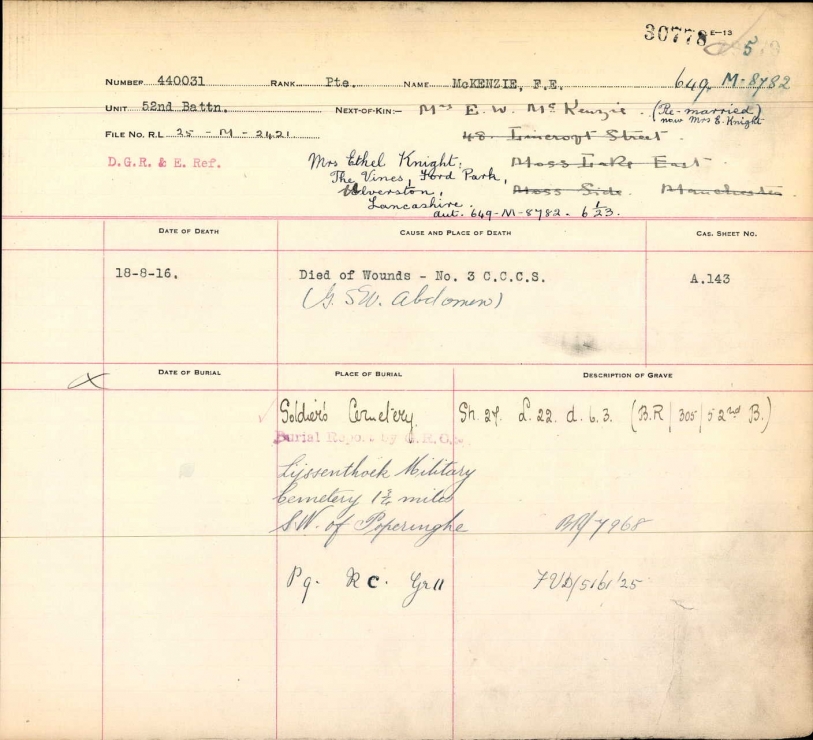 30778 E-13 5
649. M-8782
NUMBER 440031 RANK Pte. NAME McKENZIE, F.E.
UNIT 52nd Battn. NEXT-OF-KIN:- Mrs E. W. McKenzie. (Re-married)
now Mrs E. Knight
FILE NO. R.L 25 - M - 2421 48. Lincroft Street.
D.G.R. & E. Ref. Mrs Ethel Knight, Moss Lake East
The Vines, Ford Park, Moss Side. Manchester
Ulverston,
Lancashire.
aut. 649-M-8782. 6/1/23.
DATE OF DEATH CAUSE AND PLACE OF DEATH CAS. SHEET NO.
18-8-16. Died of Wounds - No. 3 C.C.C.S. A.143
(G.S.W. Abdomen)
DATE OF BURIAL PLACE OF BURIAL DESCRIPTION OF GRAVE
Soldier's Cemetery. Sh. 27. L. 22. d. 6. 3. (B.R/305/52nd B.)
Burial Report by G.R.O.
Lijssenthoek Military
Cemetery 1 3/4 miles
S.W. of Poperinghe BR/7968
P9. R C. Gr11